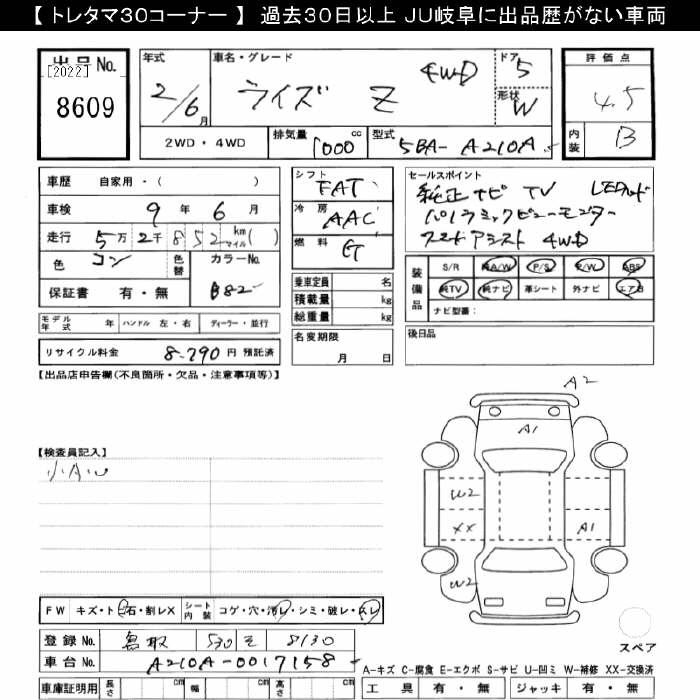 【 トレタマ30コーナー 】 過去30日以上 JU岐阜に出品歴がない車両
出品No.
[2022]
8609
年式
2/6月
車名・グレード
ライズ Z 4WD
ドア
5
形状
W
評価点
4.5
内装
B
2WD・4WD
排気量
1000 cc
型式
5BA- A210A
車歴 自家用・( )
車検 9年 6月
走行 5万 2千 852 km マイル( )
色 コン
色替
カラーNo.
B82
保証書 有・無
モデル年式 年 ハンドル 左・右 ディーラー・並行
リサイクル料金 8,790 円 預託済
シフト
FAT
冷房
AAC
燃料
G
乗車定員 名
積載量 kg
総重量 kg
名変期限
月 日
セールスポイント
純正ナビ TV LEDヘッド
パノラミックビューモニター
スマートアシスト 4WD
装備品
S/R 純A/W P/S P/W ABS
純TV 純ナビ 革シート 外ナビ エアB
ナビ型番:
後日品
【出品店申告欄(不良箇所・欠品・注意事項等)】
【検査員記入】
小A
A2
A1
W2
XX
A1
W2
スペア
FW キズ・ト石・割レX シート内装 コゲ・穴・汚レ・シミ・破レ・スレ
登録No. 鳥取 530 そ 8130
車台No. A210A-0017158
A-キズ C-腐食 E-エクボ S-サビ U-凹ミ W-補修 XX-交換済
車庫証明用 長さ cm 幅 cm 高さ cm
工具 有・無 ジャッキ 有・無